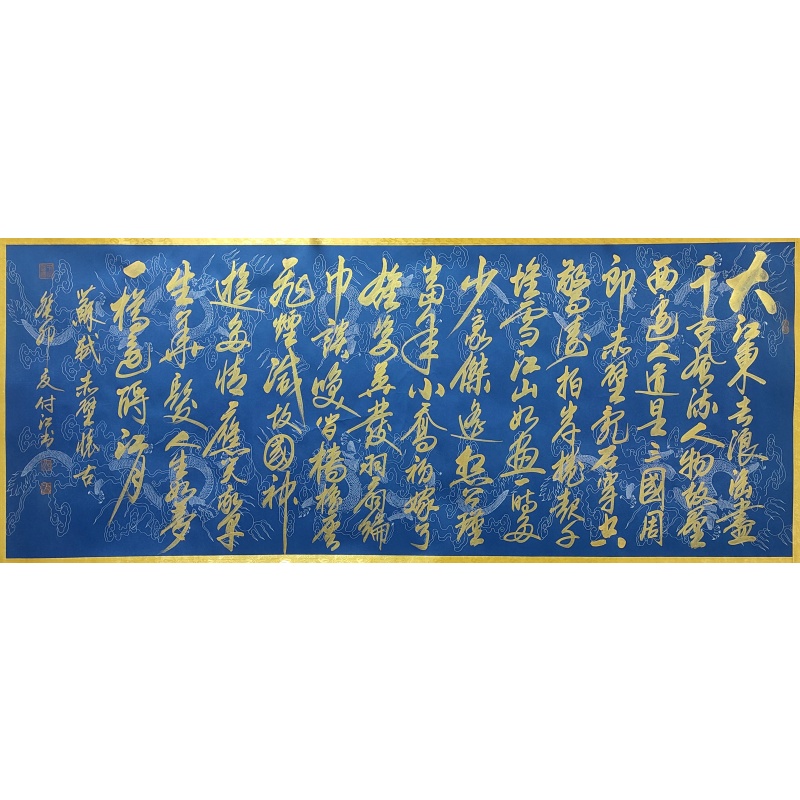 大江東去浪淘盡
千古風流人物故壘
西邊人道是三國周
郎赤壁亂石穿空
驚濤拍岸捲起千
堆雪江山如畫一時多
少豪傑遙想公瑾
當年小喬初嫁了
雄姿英發羽扇綸
巾談笑間檣櫓灰
飛煙滅故國神
遊多情應笑我早
生華髮人生如夢
一樽還酹江月
蘇軾赤壁懷古
癸卯友付江書